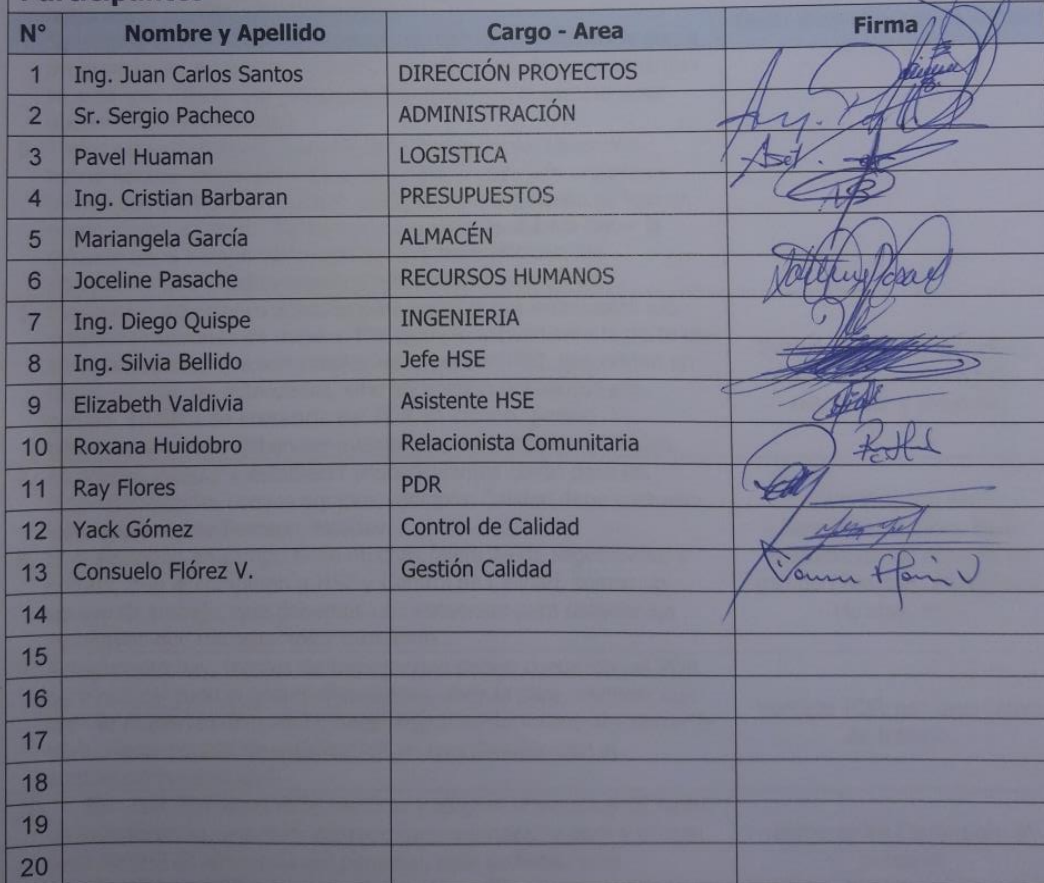 N° Nombre y Apellido Cargo - Area Firma
1 Ing. Juan Carlos Santos DIRECCIÓN PROYECTOS
2 Sr. Sergio Pacheco ADMINISTRACIÓN
3 Pavel Huaman LOGISTICA
4 Ing. Cristian Barbaran PRESUPUESTOS
5 Mariangela García ALMACÉN
6 Joceline Pasache RECURSOS HUMANOS
7 Ing. Diego Quispe INGENIERIA
8 Ing. Silvia Bellido Jefe HSE
9 Elizabeth Valdivia Asistente HSE
10 Roxana Huidobro Relacionista Comunitaria
11 Ray Flores PDR
12 Yack Gómez Control de Calidad
13 Consuelo Flórez V. Gestión Calidad
14
15
16
17
18
19
20